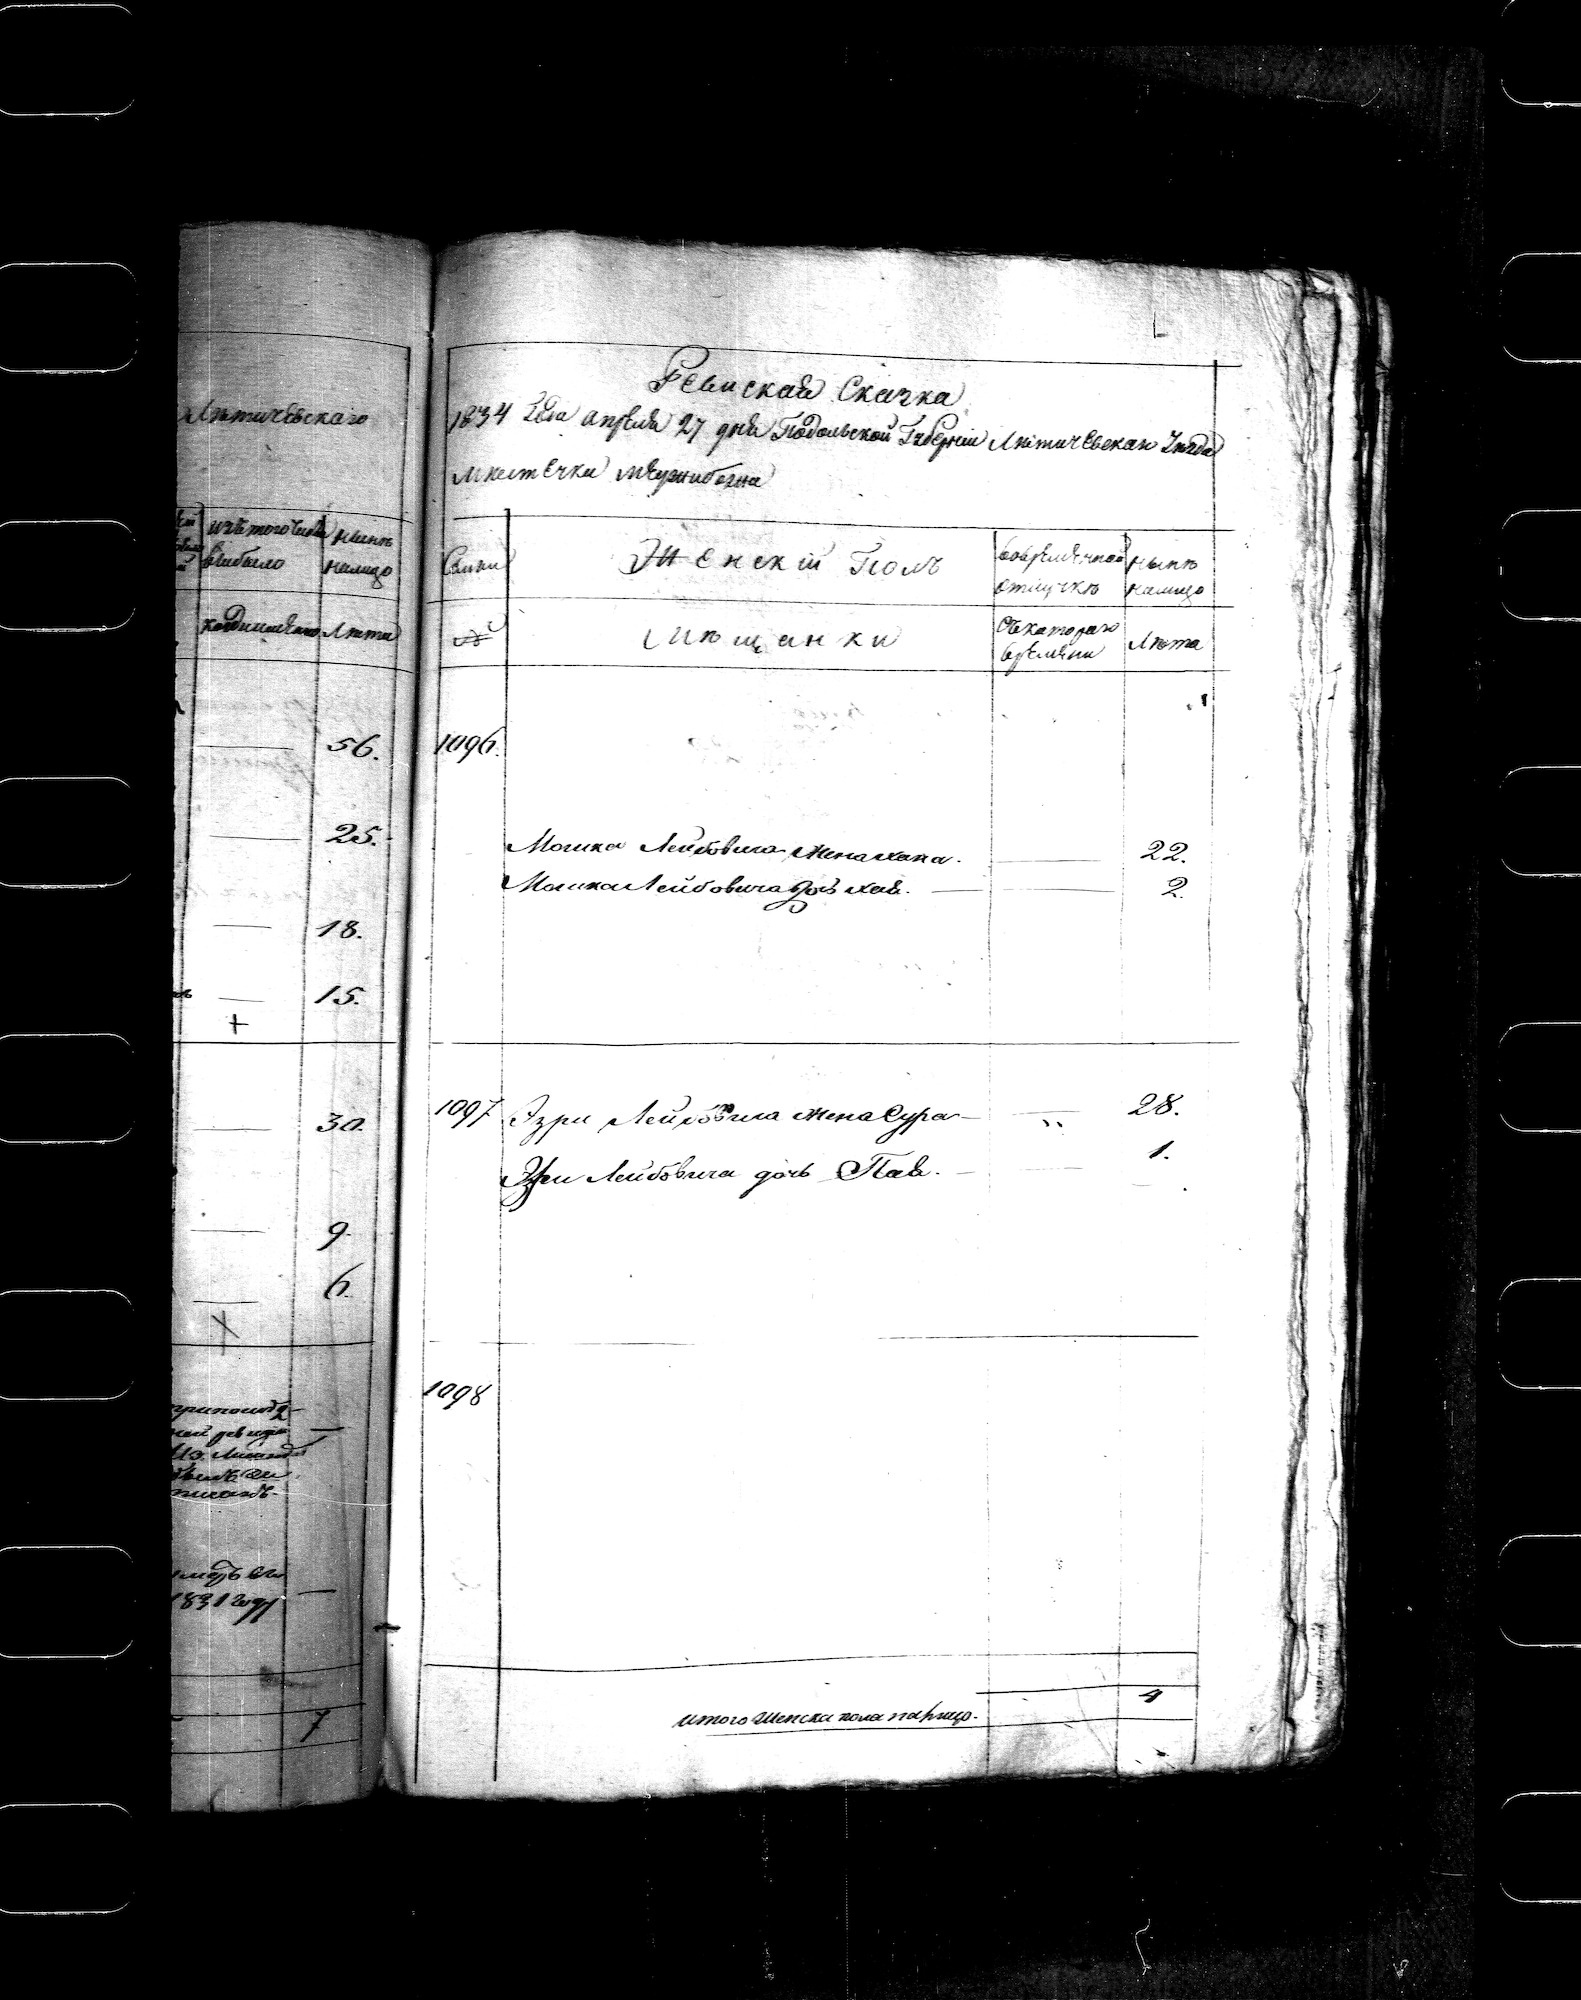 Лѣтичевскаго
изъ того числа
выбыло
нынѣ
налицо
Лѣта
56.
25.
18.
15.
+
30.
9.
6.
1831 году
7
Ревиская Скачка
1834 Года апреля 27 дня Подольской Губерніи Лѣтичевскаго Уѣзда
Мѣстечка Межибожа
Семьи
Женскій Полъ
вовременной
отлучкѣ
нынѣ
налицо
№
Мѣщанки
Съкатораго
времени
Лѣта
1096.
Мошка Лейбовича жена Хана. 22.
Мошка Лейбовича дочь Хая. 2.
1097 Эзри Лейбовича жена Сура 28.
Эзри Лейбовича дочь Пая. 1.
1098
итого женска пола налицо. 4